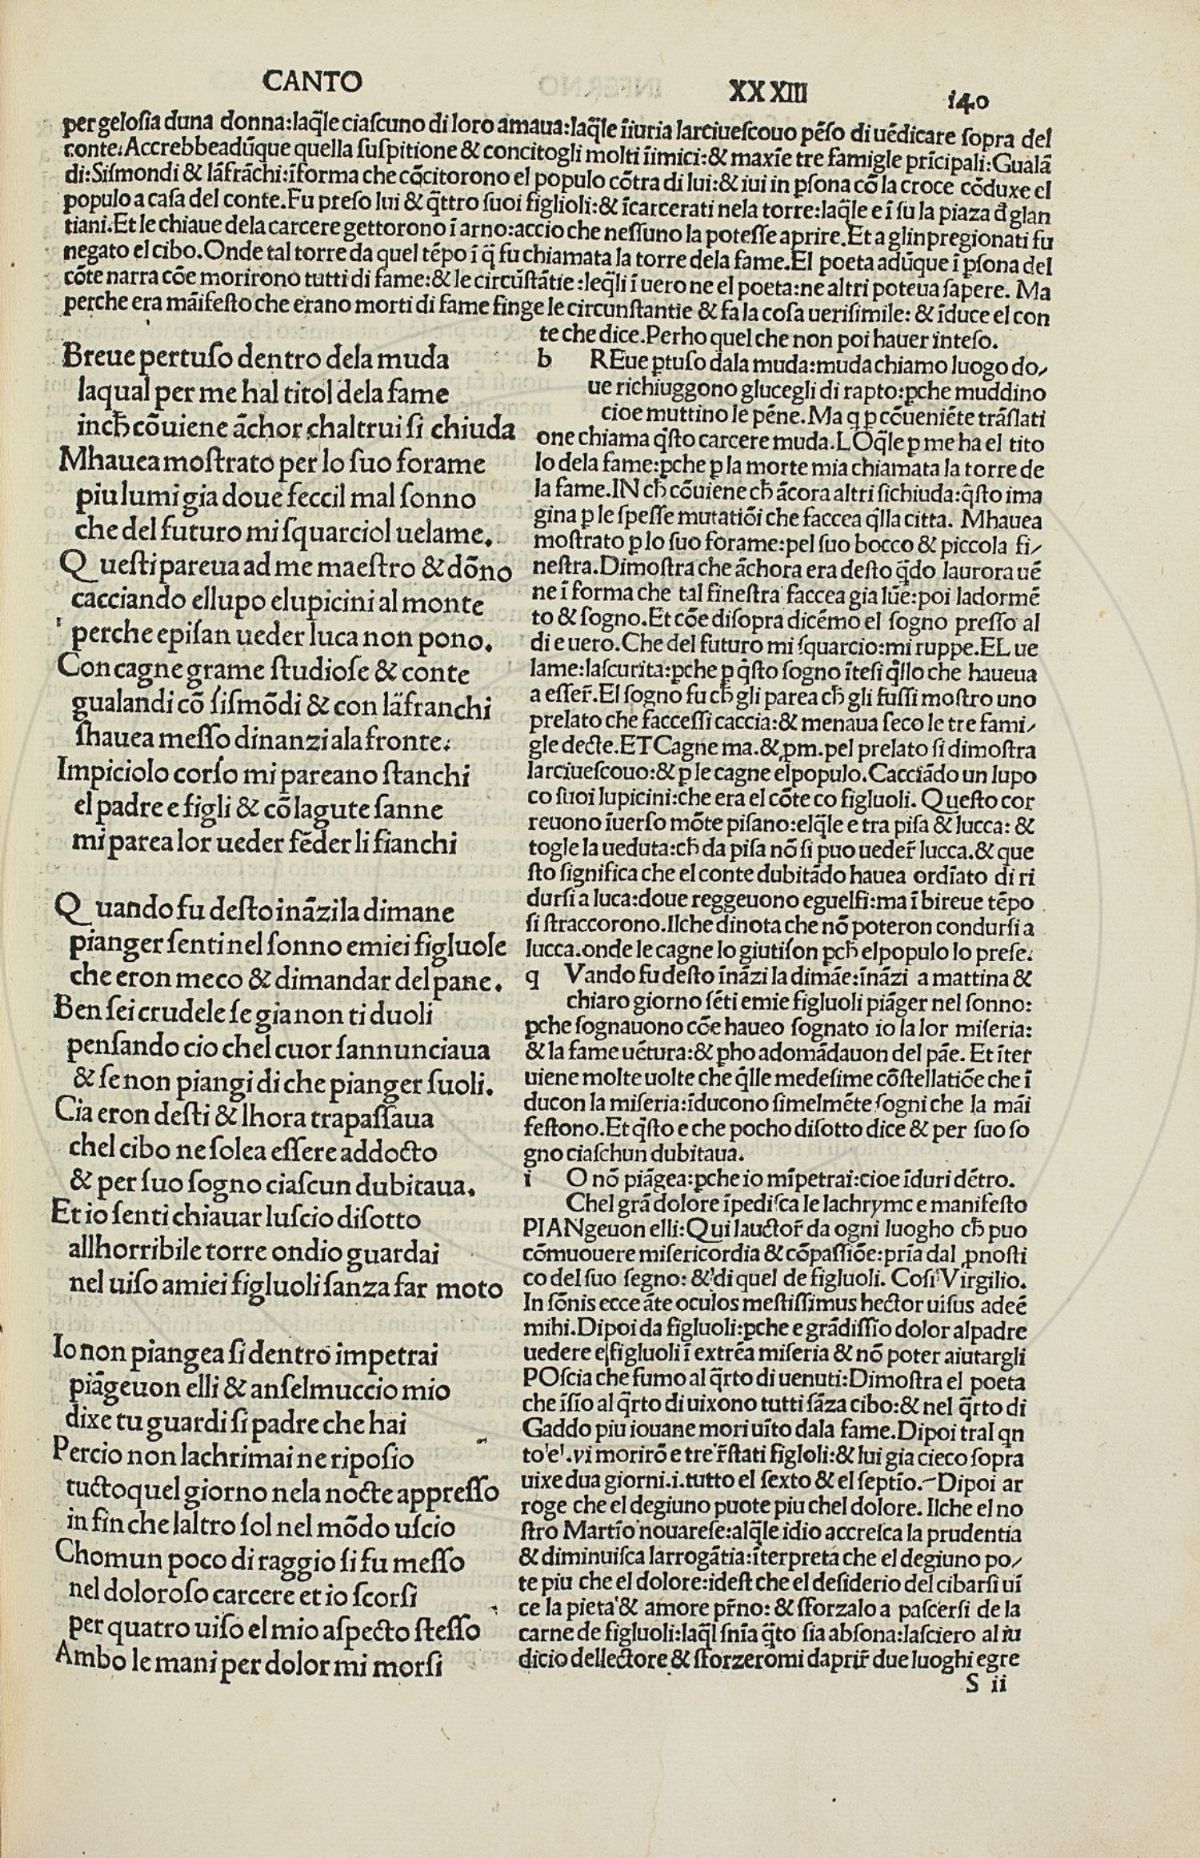 CANTO XXXIII 140
per gelosia duna donna:laq̃le ciascuno di loro amaua:laq̃le ĩiuria larciuescouo pẽso di uẽdicare sopra del
conte.Accrebbe adũque quella suspitione & concitogli molti ĩimici:& maxĩe tre famigle prĩcipali:Gualã
di:Sismondi & lãfrãchi:ĩforma che cõcitorono el populo cõtra di lui:& iui in ꝑsona cõ la croce cõduxe el
populo a casa del conte.Fu preso lui & q̃ttro suoi figlioli:& ĩcarcerati nela torre:laq̃le e ĩ su la piaza đglan
tiani.Et le chiaue dela carcere gettorono ĩ arno:accio che nessuno la potesse aprire.Et a glinpregionati fu
negato el cibo.Onde tal torre da quel tẽpo ĩ q̃ fu chiamata la torre dela fame.El poeta adũque ĩ ꝑsona del
cõte narra cõe morirono tutti di fame:& le circũstãtie:leq̃li ĩ uero ne el poeta:ne altri poteua sapere. Ma
perche era mãifesto che erano morti di fame finge le circunstantie & fa la cosa uerisimile: & ĩduce el con
te che dice.Perho quel che non poi hauer inteso.
Breue pertuso dentro dela muda
laqual per me hal titol dela fame
inch̃ cõuiene ãchor chaltrui si chiuda
Mhauea mostrato per lo suo forame
piu lumi gia doue feccil mal sonno
che del futuro mi squarciol uelame.
Questi pareua ad me maestro & dõno
cacciando ellupo elupicini al monte
perche episan ueder luca non pono.
Con cagne grame studiose & conte
gualandi cõ sismõdi & con lãfranchi
shauea messo dinanzi ala fronte.
Impiciolo corso mi pareano stanchi
el padre e figli & cõ lagute sanne
mi parea lor ueder fẽder li fianchi
Quando fu desto inãzi la dimane
pianger senti nel sonno e miei figluole
che eron meco & dimandar del pane.
Ben sei crudele se gia non ti duoli
pensando cio chel cuor sannunciaua
& se non piangi di che pianger suoli.
Cia eron desti & lhora trapassaua
chel cibo ne solea essere addocto
& per suo sogno ciascun dubitaua.
Et io senti chiauar luscio disotto
allhorribile torre ondio guardai
nel uiso amiei figluoli sanza far moto
Io non piangea si dentro impetrai
piãgeuon elli & anselmuccio mio
dixe tu guardi si padre che hai
Percio non lachrimai ne riposio
tuctoquel giorno nela nocte appresso
in fin che laltro sol nel mõdo uscio
Chomun poco di raggio si fu messo
nel doloroso carcere et io scorsi
per quatro uiso el mio aspecto stesso
Ambo le mani per dolor mi morsi
b REue ꝑtuso dala muda:muda chiamo luogo do/
ue richiuggono glucegli di rapto:ꝑche muddino
cioe muttino le pẽne. Ma q̃ ꝑ cõueniẽte trãslati
one chiama q̃sto carcere muda. LOq̃le ꝑ me ha el tito
lo dela fame:ꝑche ꝑ la morte mia chiamata la torre de
la fame.IN ch̃ cõuiene ch̃ ãcora altri sichiuda:q̃sto ima
gina ꝑ le spesse mutatiõi che faccea q̃lla citta. Mhauea
mostrato ꝑ lo suo forame:pel suo bocco & piccola fi/
nestra.Dimostra che ãchora era desto q̃do laurora uẽ
ne ĩ forma che tal finestra faccea gia lũe:poi ladormẽ
to & sogno. Et cõe disopra dicẽmo el sogno presso al
di e uero. Che del futuro mi squarcio:mi ruppe.EL ue
lame:lascurita:ꝑche ꝑ q̃sto sogno ĩtesi q̃llo che haueua
a esser̃.El sogno fu ch̃ gli parea ch̃ gli fussi mostro uno
prelato che faccessi caccia:& menaua seco le tre fami/
gle decte. ET Cagne ma.&.ꝑm.pel prelato si dimostra
larciuescouo:& ꝑ le cagne el populo. Cacciãdo un lupo
co suoi lupicini:che era el cõte co figluoli. Questo cor
reuono ĩuerso mõte pisano:elq̃le e tra pisa & lucca: &
togle la ueduta:ch̃ da pisa nõ si puo ueder̃ lucca.& que
sto significa che el conte dubitãdo hauea ordĩato di ri
dursi a luca:doue reggeuono eguelfi:ma ĩ bireue tẽpo
si straccorono. Ilche dinota che nõ poteron condursi a
lucca.onde le cagne lo giutison ꝑch̃ el populo lo prese.
q Vando fu desto ĩnãzi la dimãe:ĩnãzi a mattina &
chiaro giorno sẽti emie figluoli piãger nel sonno:
ꝑche sognauono cõe haueo sognato io la lor miseria:
& la fame uẽtura:& ꝑho adomãdauon del pãe. Et ĩter
uiene molte uolte che q̃lle medesime cõstellatiõe che ĩ
ducon la miseria:ĩducono simelmẽte sogni che la mãi
festono. Et q̃sto e che pocho disotto dice & per suo so
gno ciaschun dubitaua.
i O nõ piãgea:ꝑche io mĩpetrai:cioe ĩduri dẽtro.
Chel grã dolore ĩpedisca le lachryme e manifesto
PIANgeuon elli: Qui lauctor̃ da ogni luogho ch̃ puo
cõmuouere misericordia & cõpassiõe:prĩa dal ꝓnosti
co del suo segno: & di quel de figluoli. Cosi Virgilio.
In sõnis ecce ãte oculos mestissimus hector uisus adeẽ
mihi. Dipoi da figluoli:ꝑche e grãdissio dolor al padre
uedere e figluoli ĩ extrẽa miseria & nõ poter aiutargli
POscia che fumo al q̃rto di uenuti:Dimostra el poeta
che ĩsio al q̃rto di uixono tutti sãza cibo:& nel q̃rto di
Gaddo piu iouane mori uĩto dala fame. Dipoi tral qn
to e'.vi morirõ e tre r̃stati figloli:& lui gia cieco sopra
uixe dua giorni.i.tutto el sexto & el septĩo. Dipoi ar
roge che el degiuno puote piu chel dolore. Ilche el no
stro Martĩo nouarese:alq̃le idio accresca la prudentia
& diminuisca larrogãtia:ĩterpreta che el degiuno po/
te piu che el dolore:idest che el desiderio del cibarsi uĩ
ce la pieta & amore pr̃no: & sforzalo a pascersi de la
carne de figluoli:laq̃l snĩa q̃to sia absona:lasciero al iu
dicio dellectore & sforzeromi daprir̃ due luoghi egre
S ii